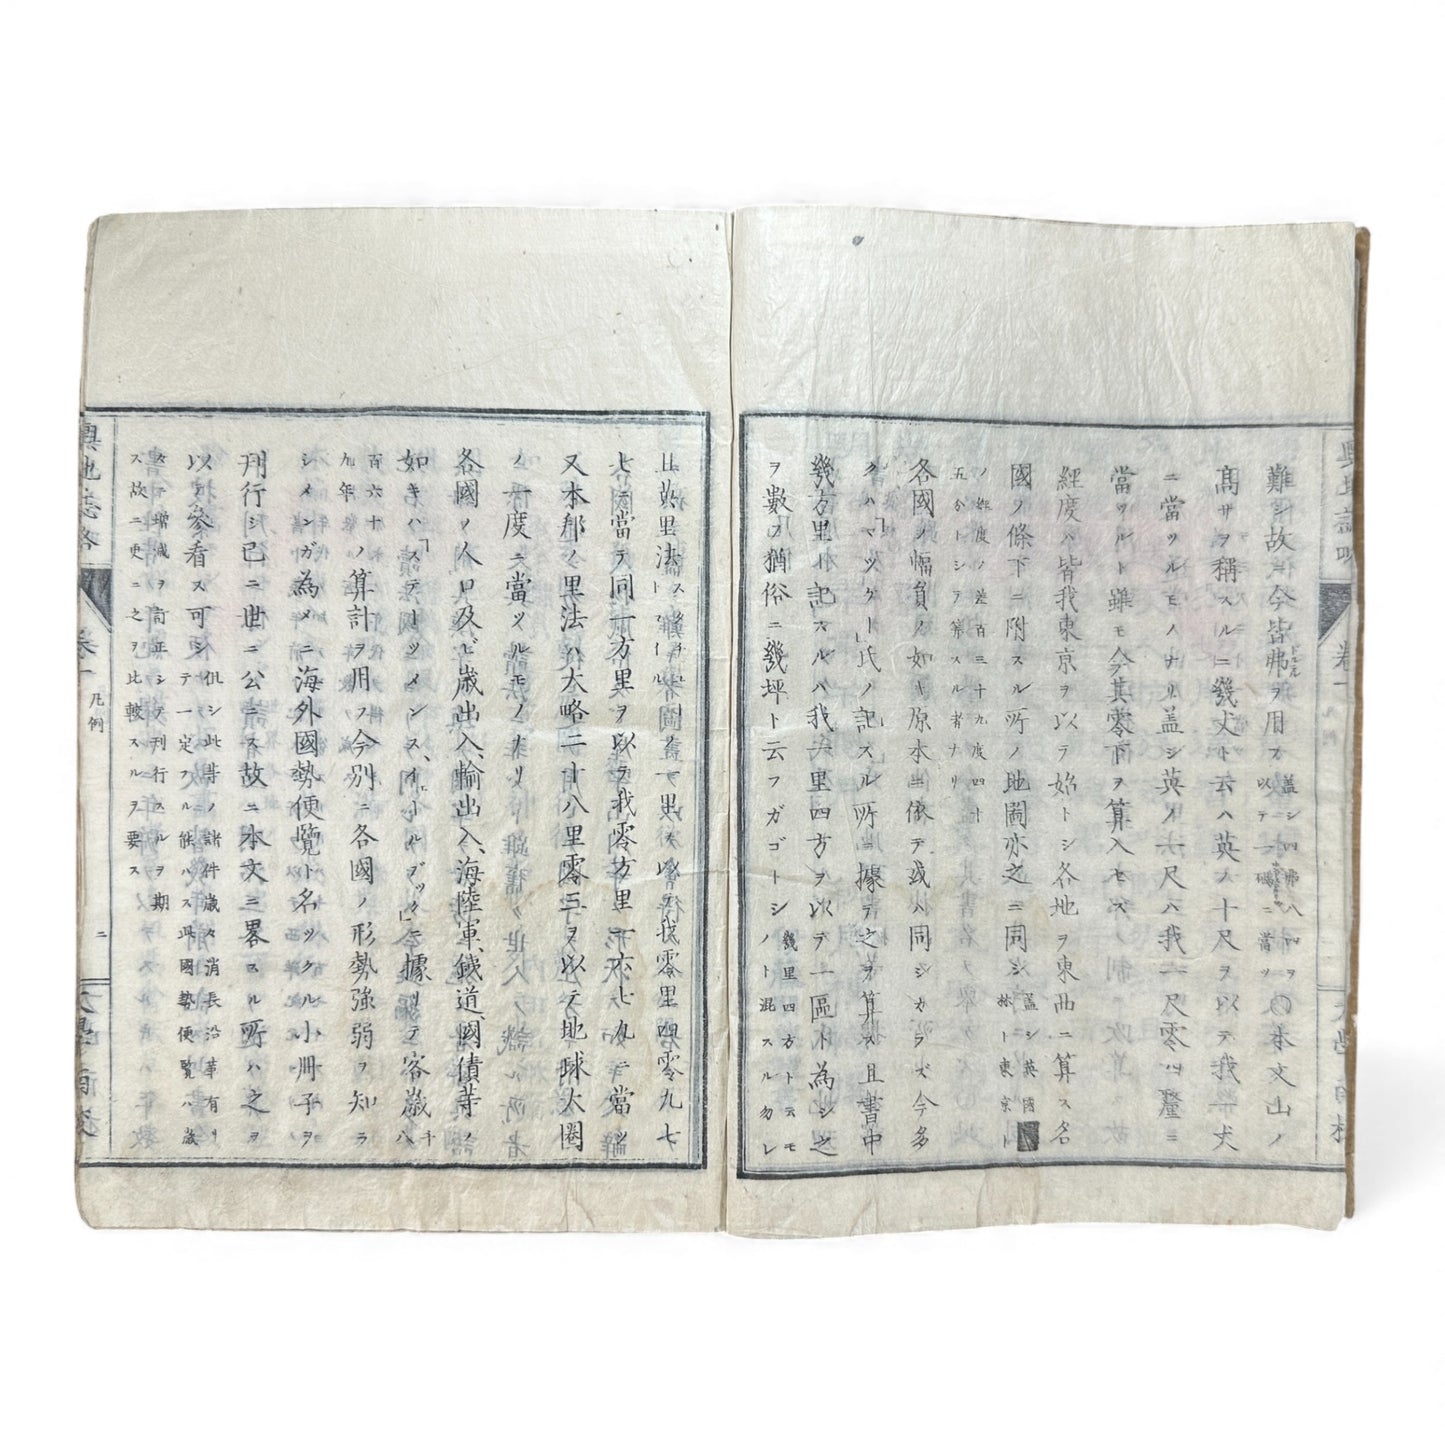 難シ故ニ今皆弗ヲ用ヌ 蓋シ四弗八四ヲ以テ一磅ニ當ツ 〇本文山ノ
高サヲ稱スルニ幾尺ト云ハ英ノ十尺ヲ以テ我十尺
ニ當ツルモノナリ蓋シ英ノ一尺ハ我一尺零〇四釐ニ
當ツルト雖モ今其零下ヲ算入セス
經度ハ皆我東京ヲ以テ始トシ各地ヲ東西ニ算ス名
國ノ條下ニ附スル所ノ地圖亦之ニ同シ 蓋シ英國林ト東京ト
ノ經度ノ差百三十九度四十五分トシテ算スル者ナリ
各國ノ幅員ノ如キ原本ニ依テ或ハ同シカラズ今多
クハ「マッケー」氏ノ記スル所ニ據テ之ヲ算ス且書中
幾方里ト記スルハ我一里四方ヲ以テ一區ト為シ之
ヲ數フ猶俗ニ幾坪ト云フガゴトシ 幾里四方ト云モノト混スル勿レ
此英里法 一里ヲ以テ我零里四零九七
七ニ當テ同一方里ヲ以テ我零方里一六七九ニ當ツ
又本邦ノ里法ハ大略二十八里零三ヲ以テ地球大圏
ノ一度ニ當ツルモノナリ
各國ノ人口及ビ歲出入、輸出入、海陸軍、鐵道、國債等ノ
如キハ「ステーツメンス、イートルブック」ニ據リテ客歲 千八
百六十九年 ノ算計ヲ用フ今別ニ各國ノ形勢強弱ヲ知ラ
シメンガ為メニ海外國勢便覽ト名ツクル小冊子ヲ
刊行シ已ニ世ニ公ニス故ニ本文ニ畧スル所ハ之ヲ
以テ參看ス可シ 但シ此等ノ諸件歲々消長沿革有リテ一定スル能ハス此國勢便覽ハ歲
々增減ヲ訂正シ刊行スルヲ期ス故ニ更ニ之ヲ比較スルヲ要ス
輿地誌略
卷一
凡例
二
大學南校